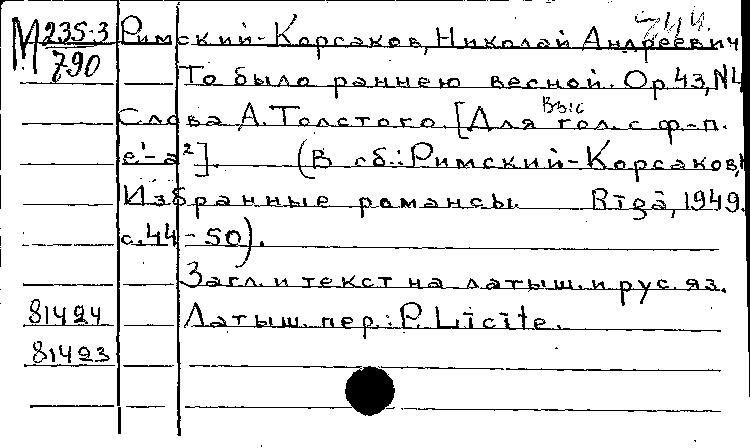 744.
М 235-3 Римский-Корсаков, Николай Андреевич
790
То было раннею весной. Op 43, N4
Выс
Слова А. Толстого [Для гол. с ф-п.
e¹-a²]. (В сб.: Римский-Корсаков, Н
Избранные романсы. Rīgā, 1949.
с. 44-50).
Загл. и текст на латыш. и рус. яз.
81424 Латыш. пер.: P. Līcīte.
81423